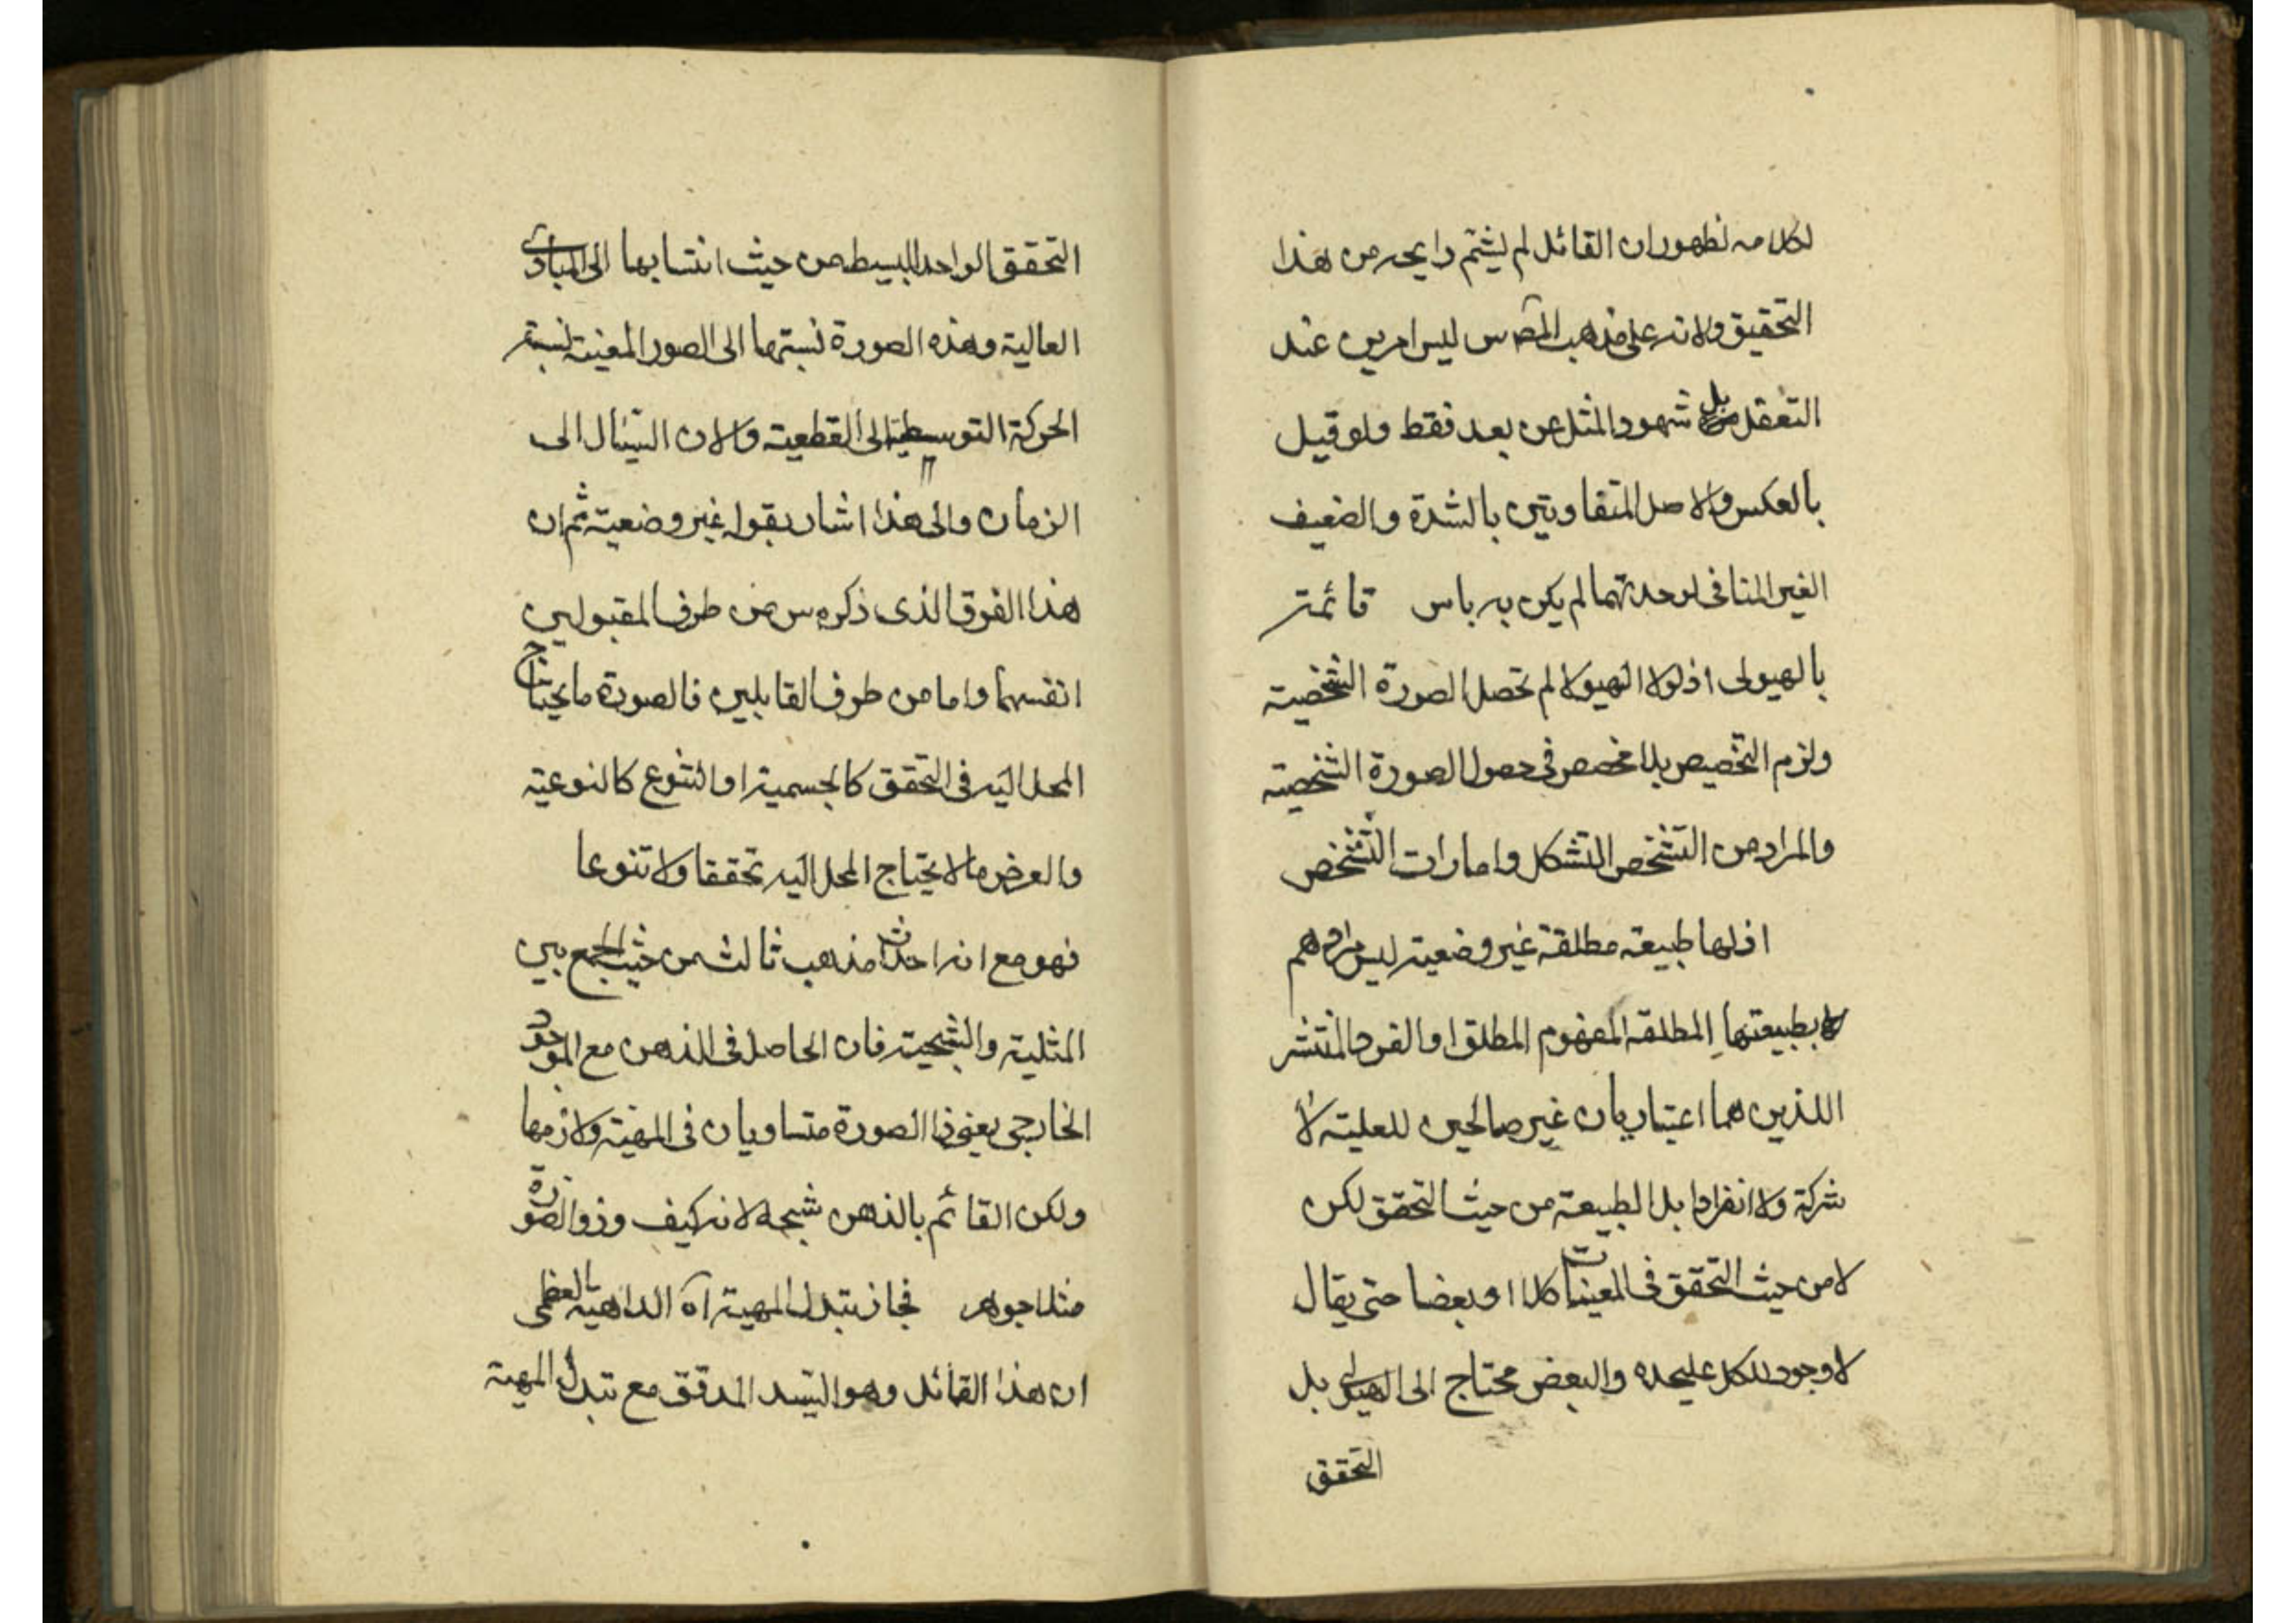 لكلامه لظهور ان القائل لم يشتم رايحه من هذا
التحقيق ولانه على مذهب المص س ليس امرين عند
التعقل بل شهود المثل عن بعد فقط ولو قيل
بالعكس والاصل المتفاوتين بالشدة والضعيف
الغير المنافى لوحدتهما لم يكن به باس قائمة
بالهيولى اذ لولا الهيولا لم تحصل الصورة الشخصية
ولزم التخصيص بلا مخصص فى حصول الصورة الشخصية
والمراد من التشخص التشكل وامارات التشخص
اذ لها طبيعة مطلقة غير وضعية ليس مرادهم
بطبيعتها المطلقة المفهوم المطلق او الفرد المنتشر
اللذين هما اعتباريان غير صالحين للعلية لا
شركة ولا انفرادا بل الطبيعة من حيث التحقق لكن
لا من حيث التحقق فى المعينات كلا او بعضا حتى يقال
لا وجود للكل عليحده والبعض محتاج الى الهيولى بل
التحقق
التحقق الواحد البسيط من حيث انتسابها الى المبادى
العالية وهذه الصورة نسبتها الى الصور المعينة نسبة
الحركة التوسطية الى القطعية والان السيال الى
الزمان والى هذا اشار بقوله غير وضعية ثم ان
هذا الفرق الذى ذكره س من طرف المقبولين
انفسهما واما من طرف القابلين فالصورة ما يحتاج
المحل اليه فى التحقق كالجسمية او التنوع كالنوعية
والعرض ما لا يحتاج المحل اليه تحققا ولا تنوعا
فهو مع انه احداث مذهب ثالث من حيث الجمع بين
المثلية والشبحية فان الحاصل فى الذهن مع الموجود
الخارجى يعنى ذا الصورة متساويان فى المهية ولازمها
ولكن القائم بالذهن شبحه لانه كيف وذو الصورة
مثلا جوهر فجاز تبدل المهية آه الداهية العظمى
ان هذا القائل وهو السيد المدقق مع تبدل المهية